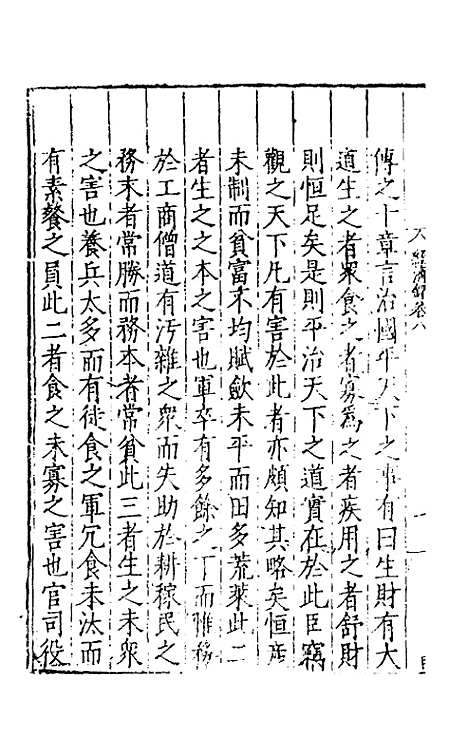 傳之十章言治國平天下之事有曰生財有大
道生之者眾食之者寡為之者疾用之者舒財
則恒足矣是則平治天下之道實在於此臣竊
觀之天下凡有害於此者亦頗知其略矣恒產
未制而貧富不均賦歛未平而田多荒萊此二
者生之之本之害也軍卒有多餘之丁而惟務
於工商僧道有汚雜之衆而失助於耕稼民之
務末者常勝而務本者常貧此三者生之未衆
之害也養兵太多而有徒食之軍冗食未汰而
有素餐之員此二者食之未寡之害也官司役
卷八